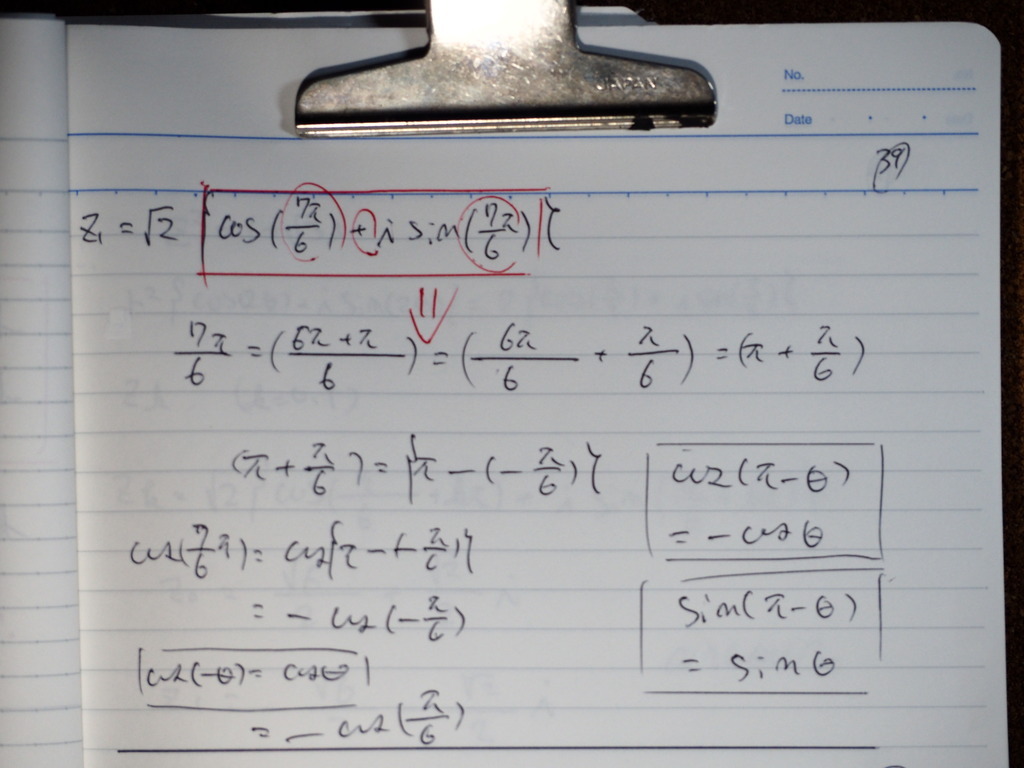 JAPAN
No.
Date
39
z₁ = √2 { cos(7π/6) + i sin(7/6 π) }
7π/6 = (6π+π/6) = (6π/6 + π/6) = (π + π/6)
(π + π/6) = {π - (-π/6)}
cos(π-θ)
= -cosθ
cos(7/6 π) = cos{π - (-π/6)}
= -cos(-π/6)
sin(π-θ)
= sinθ
cos(-θ) = cosθ
= -cos(π/6)